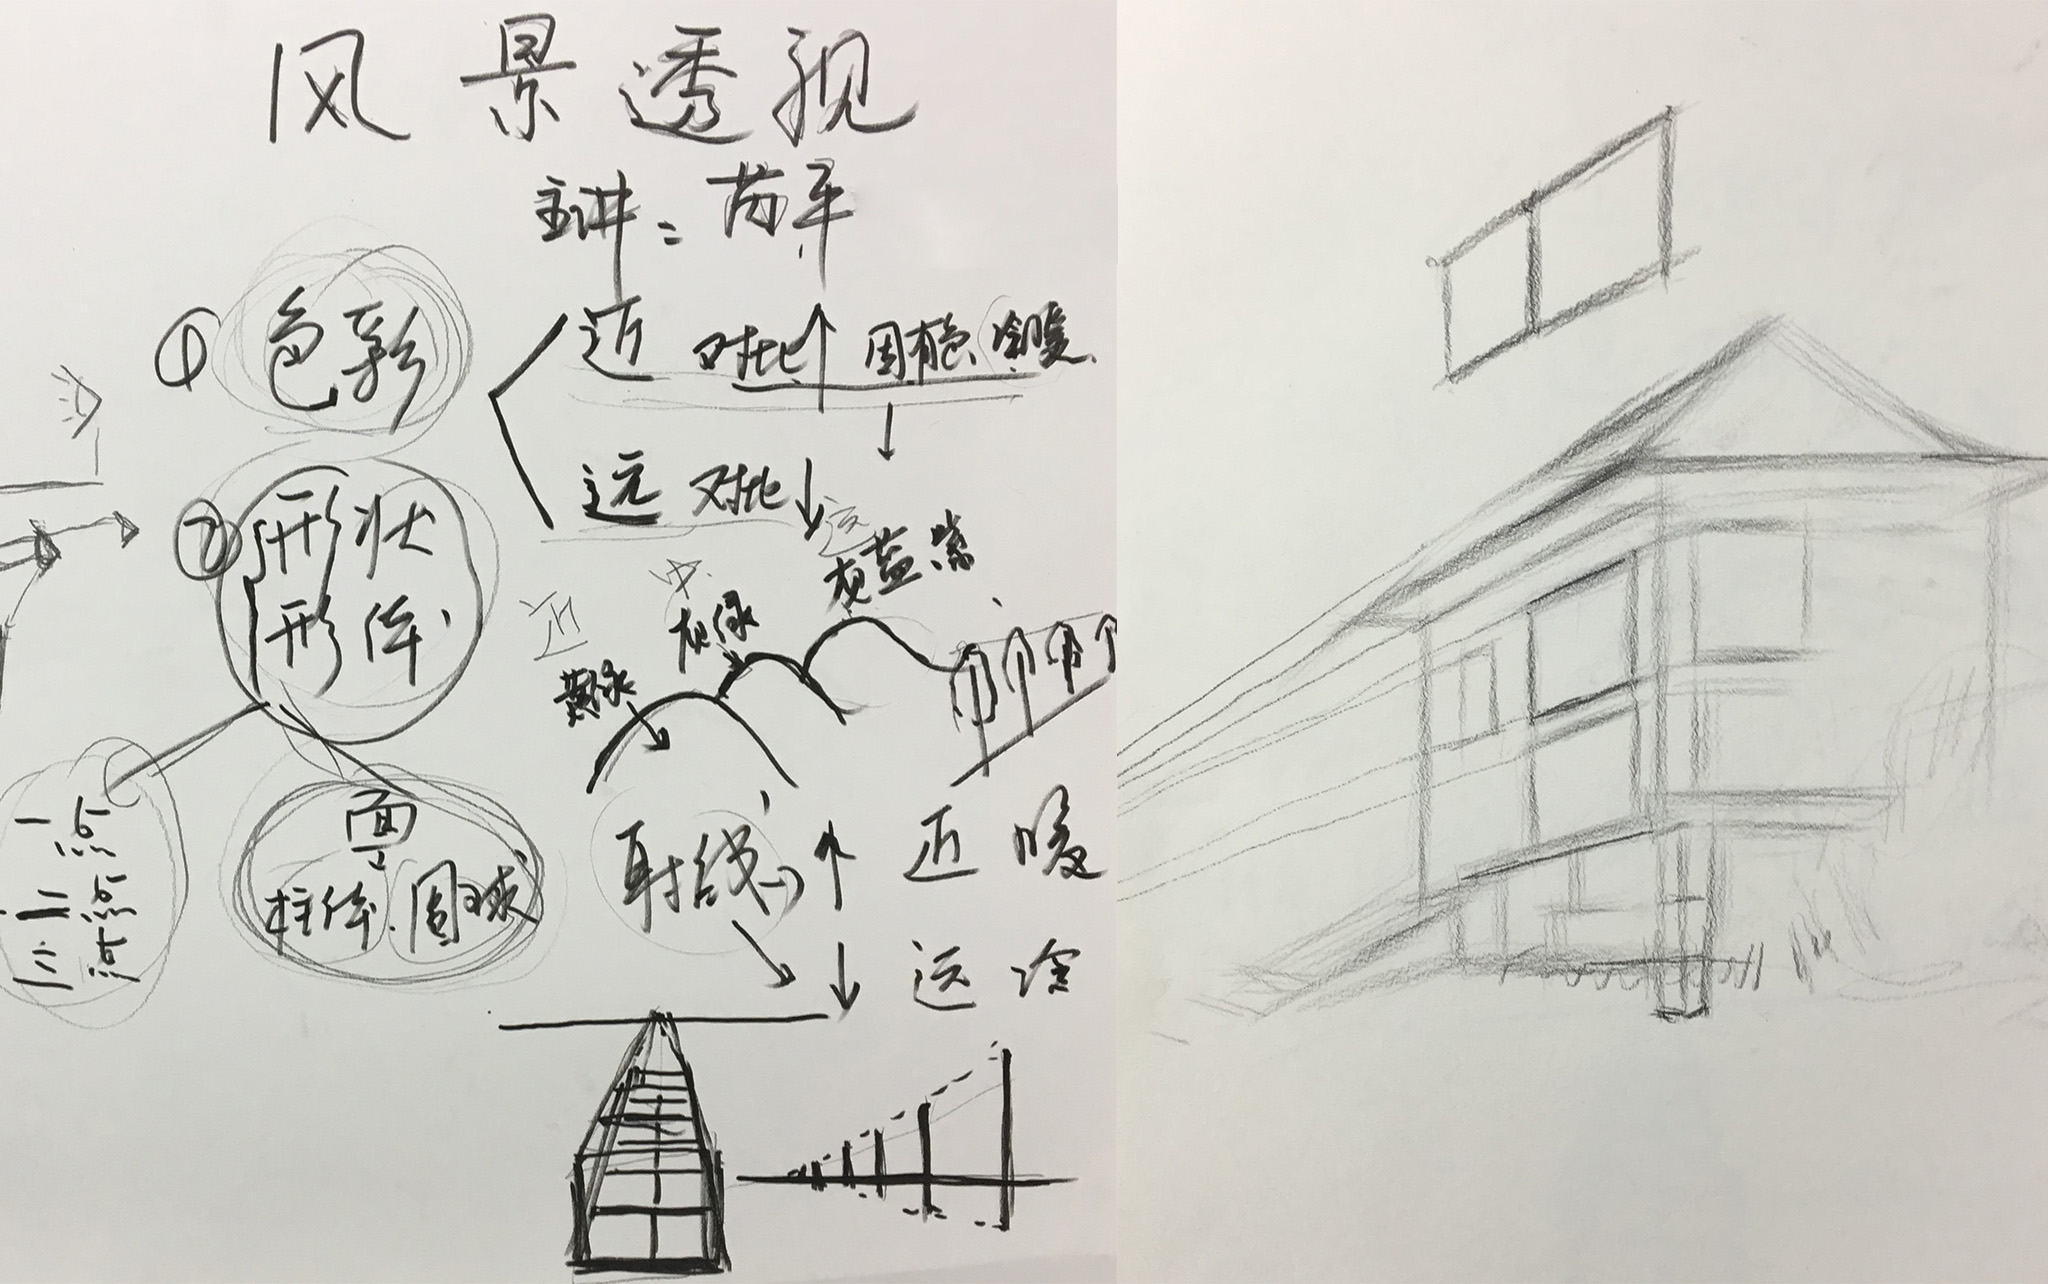 风景透视
主讲：芮平
① 色彩
近 对比↑ 固有色 冷暖
远 对比↓
② 形状
形体
近
中
远
黄绿
灰绿
灰蓝紫
一点
二点
三点
面
柱体 圆球
射线
近 暖
远 冷